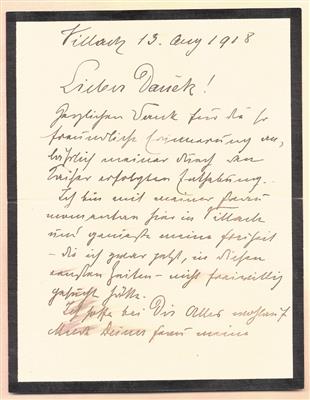 Villach 13. Aug 1918
Lieber Danék!
Herzlichen Dank für die so
freundliche Erinnerung an-
läßlich meiner durch den
Kaiser erfolgten Enthebung.
Ich bin mit meiner Frau
momentan hier in Villach
und genieße meine Freiheit
- die ich zwar jetzt, in diesen
ernsten Zeiten - nicht freiwillig
gesucht hätte.
Ich hoffe bei Dir Alles wohlauf
Deiner Frau meine